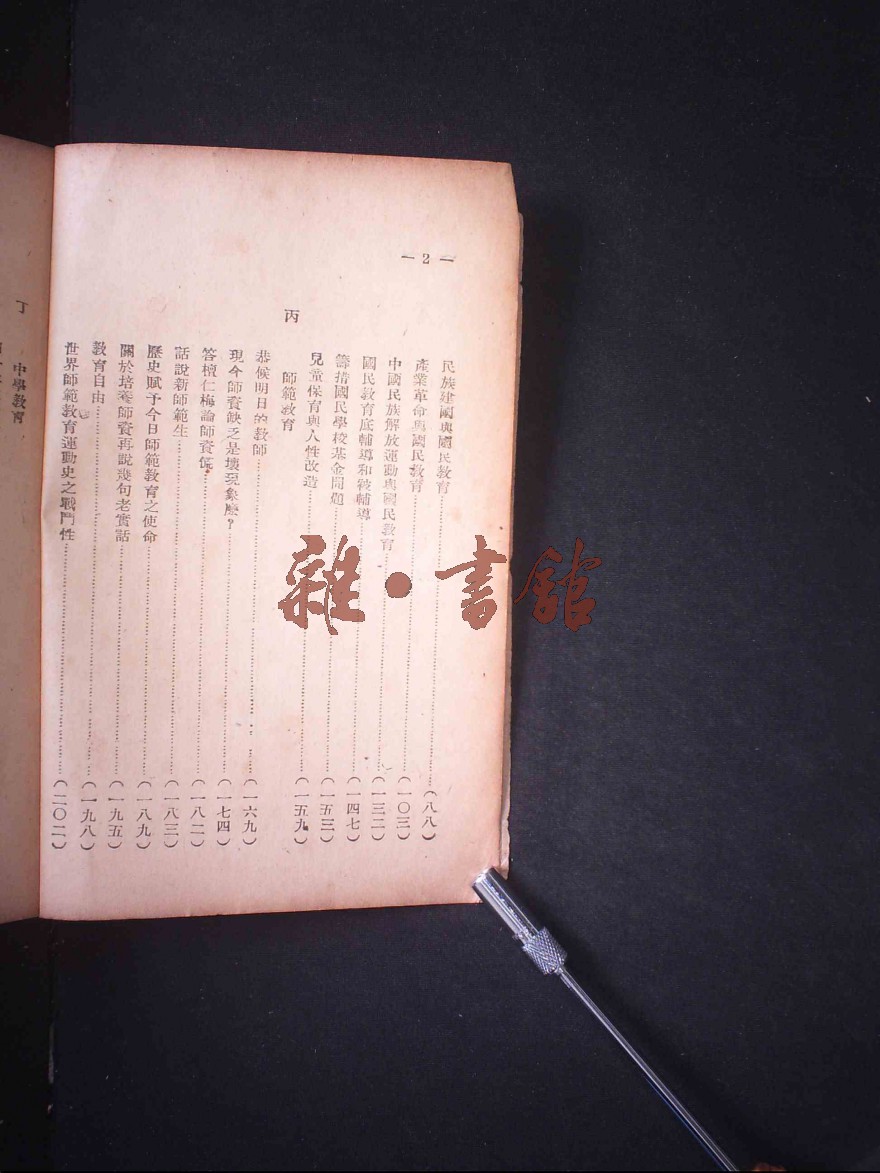 — 2 —
民族建國與國民教育……(八八)
產業革命與國民教育……(一〇三)
中國民族解放運動與國民教育……(一三二)
國民教育底輔導和被輔導……(一四七)
籌措國民學校基金問題……(一五三)
兒童保育與人性改造……(一五九)
丙 師範教育
恭候明日的教師……(一六九)
現今師資缺乏是壞現象麼?……(一七四)
答檀仁梅論師資低……(一八二)
話說新師範生……(一八三)
歷史賦予今日師範教育之使命……(一八九)
關於培養師資再說幾句老實話……(一九五)
教育自由……(一九八)
世界師範教育運動史之戰鬥性……(二〇二)
丁 中學教育
雜·書館